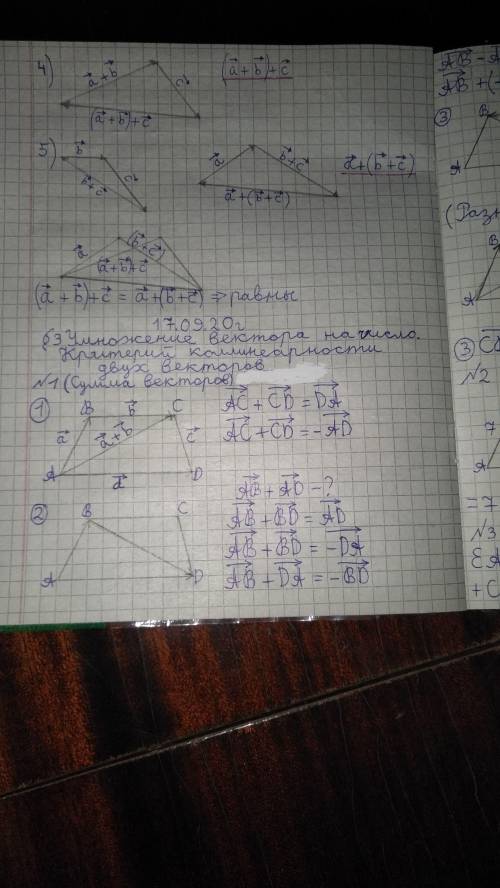 4) a⃗+b⃗ c⃗ (a⃗+b⃗)+c⃗
(a⃗+b⃗)+c⃗
5) b⃗ c⃗ b⃗+c⃗ a⃗ b⃗+c⃗ a⃗+(b⃗+c⃗)
a⃗+(b⃗+c⃗)
a⃗ (b⃗+c⃗)
(a⃗+b⃗)+c⃗
(a⃗+b⃗)+c⃗ = a⃗+(b⃗+c⃗) ⇒ равны
17.09.20г
§3 Умножение вектора на число.
Критерий коллинеарности
двух векторов
№1 (Сумма векторов)
① B b⃗ C AC⃗ + CD⃗ = DA⃗
a⃗ a⃗+b⃗ c⃗ AC⃗ + CD⃗ = -AD⃗
A d⃗ D
AB⃗ + AD⃗ - ?
② B C AB⃗ + BD⃗ = AD⃗
AB⃗ + BD⃗ = -DA⃗
A D AB⃗ + DA⃗ = -BD⃗
AB⃗ -
AB⃗ + (-
③ B
A
(Разн
B
A
③ CD
№2
7
A
= 7
№3
+ C